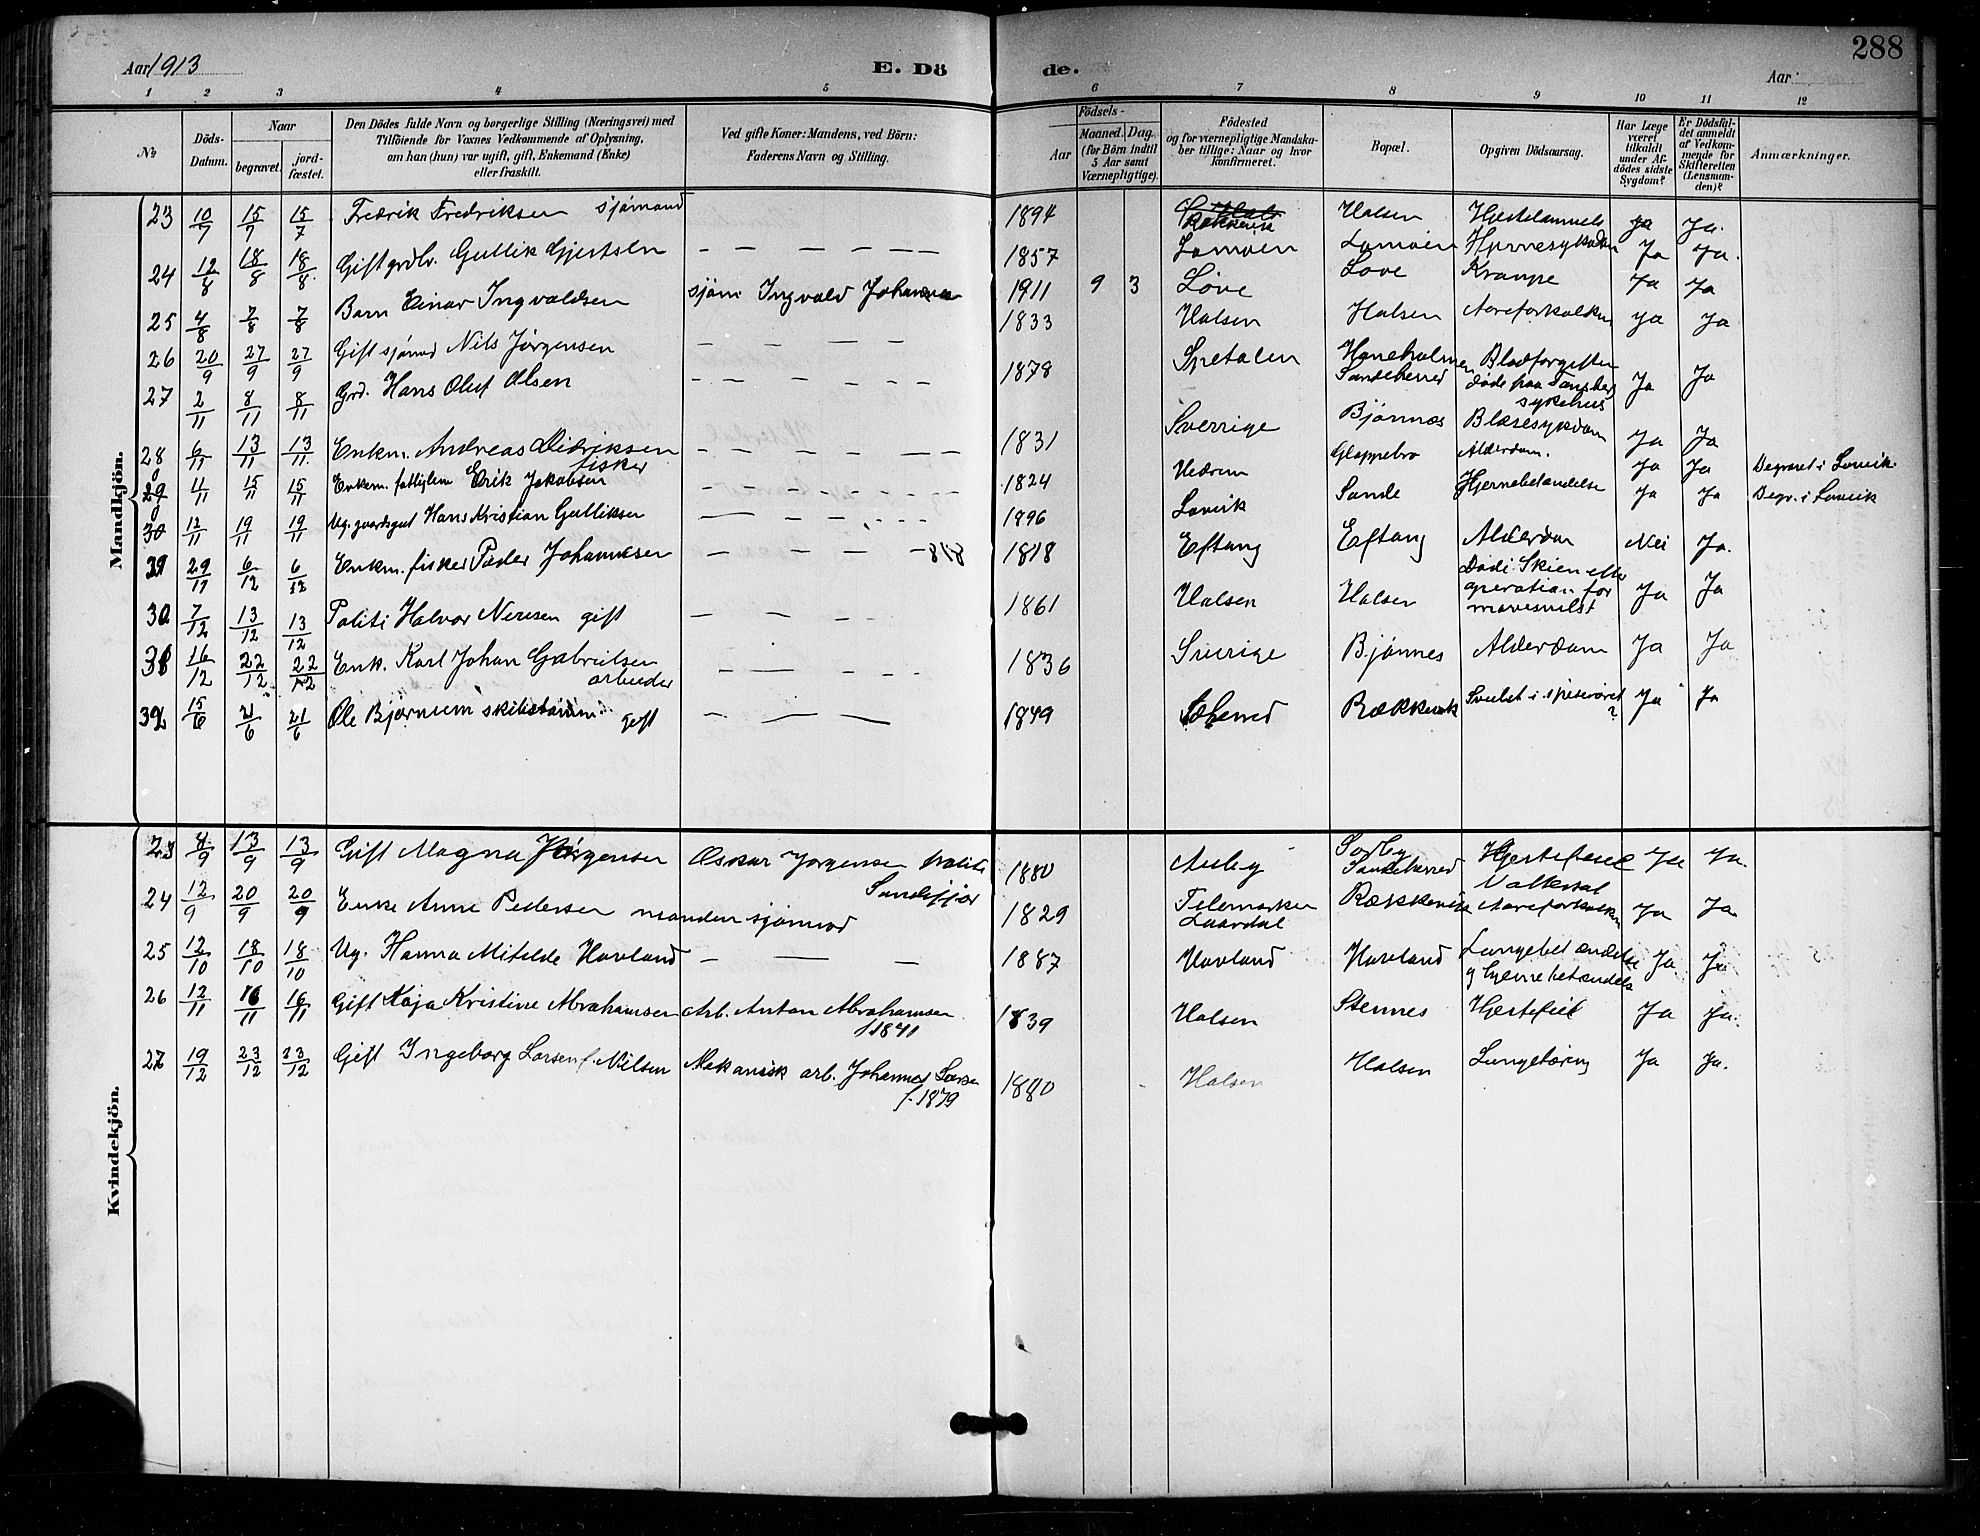 288
Aar 1913
E. Dö
de.
Aar
1 2 3 4 5 6 7 8 9 10 11 12
№
Döds-
Datum.
Naar
begravet.
jord-
fæstet.
Den Dödes fulde Navn og borgerlige Stilling (Næringsvei) med
Tilföiende for Voxnes Vedkommende af Oplysning,
om han (hun) var ugift, gift, Enkemand (Enke)
eller fraskilt.
Ved gifte Koner: Mandens, ved Börn:
Faderens Navn og Stilling.
Födsels-
Aar
Maaned. Dag
(for Börn indtil
5 Aar samt
Værnepligtige).
Födested
og for værnepligtige Mandska-
ber tillige: Naar og hvor
konfirmeret.
Bopæl.
Opgiven Dödsaarsag.
Har Læge
været
tilkaldt
under Af-
dödes sidste
Sygdom?
Er Dödsfal-
det anmeldt
af Vedkom-
mende for
Skifteretten
(Lensman-
den)?
Anmærkninger.
Mandkjön.
23 10/7 15/7 15/7 Fredrik Fredriksen sjömand 1894 Rekkevik Halsen Hjertelammels ja Ja.
24 12/8 18/8 18/8 Gift grdbr. Gullik Gjertsen — — — — — 1857 Lamøen Lamøen Hjernesykdom Ja Ja.
25 4/8 7/8 7/8 Barn Einar Ingvaldsen sjöm Ingvald Johannesen 1911 9 3 Løve Love Krampe Ja Ja
26 20/9 27/9 27/9 Gift sjömd Nils Jørgensen — — — — 1833 Halsen Halsen Aareforkalkn ja Ja
27 2/11 8/11 8/11 Grd. Hans Oluf Olsen — — — — 1878 Spetalen Haneholmen
Sandeherred Blodforgiftn
døde paa Tønsberg
sykehus Ja Ja
28 6/11 13/11 13/11 Enkm. Andreas Didriksen
fisker — — — — 1831 Sverrige Bjønnes Blæresykdom Ja Ja
29 4/11 15/11 15/11 Enkem. fattiglem Erik Jakobsen — — — — 1824 Hedrum Gloppebro Alderdom. Ja Ja Begravet i Larvik.
30 12/11 19/11 19/11 Ug. gaardsgut Hans Kristian Gulliksen — — — 1896 Larvik Sande Hjernebetændelse Ja Ja Begr. i Larvik
31 29/11 6/12 6/12 Enkm. fisker Peder Johannesen — — — 818 1818 Eftang Eftang Alderdom Nei Ja.
30 7/12 13/12 13/12 Politi Halvor Nirisen gift — — — 1861 Halsen Halsen Død i Skien efter
operation for
mavesvulst Ja Ja
31 16/12 22/12 22/12 Enk. Karl Johan Gabrielsen
arbeider — — — 1836 Sverige Bjønnes Alderdom Ja Ja
32 15/6 21/6 21/6 Ole Bjørnum gift — — — 1849 Rækkevik Svulst i spiserøret
? Ja Ja
Kvindekjön.
23 8/9 13/9 13/9 Gift Magna Jörgensen Oskar Jørgensen politi
Sandefjord 1880 Auby Sørby
Sandeherred Hjertefeil Ja Ja.
24 12/9 20/9 20/9 Enke Anne Pedersen manden sjømnd 1829 Telemarken
Laardal Rækkevik
Aareforkalkn Ja Ja.
25 12/10 18/10 18/10 Ug. Hanna Mitelde Havland — — — 1887 Havland Havland Lungebetændelse
og hjernebetændelse Ja Ja.
26 12/11 16/11 16/11 Gift Kaja Kristine Abrahamsen Arb. Anton Abrahamsen
f 1841 1839 Halsen Stennes Hjertefeil Ja Ja.
27 19/12 23/12 23/12 Gift Ingeborg Larsen f. Nilsen Mekanisk arb. Johannes Larsen
f. 1879 1880 Halsen Halsen Lungetæring Ja Ja.